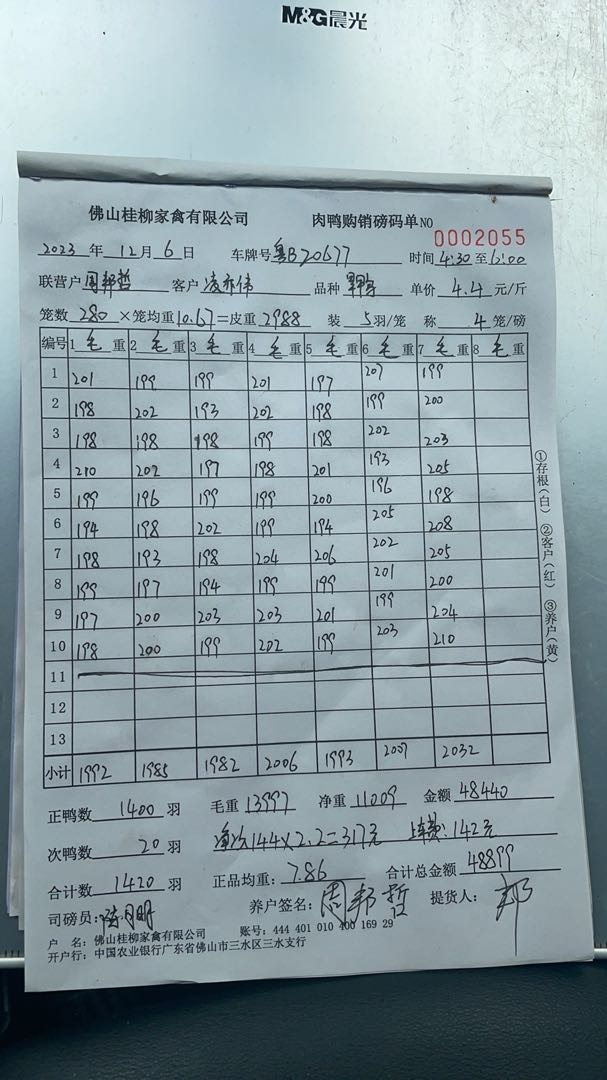 M&G晨光
佛山桂柳家禽有限公司 肉鸭购销磅码单 NO 0002055
2023 年 12 月 6 日 车牌号 粤B20677 时间 4:30 至 6:00
联营户 周邦哲 客户 凌亦伟 品种 单价 4.4 元/斤
笼数 280 ×笼均重 10.67 =皮重 2988 装 5 羽/笼 称 4 笼/磅
编号 1 毛 重 2 毛 重 3 毛 重 4 毛 重 5 毛 重 6 毛 重 7 毛 重 8 毛 重
1 201 199 199 201 197 207 199
2 198 202 193 202 198 199 200
3 198 198 198 199 198 202 203
4 210 202 197 198 201 193 205
5 199 196 199 199 200 196 198
6 194 198 202 199 194 205 208
7 198 193 198 204 206 202 205
8 199 197 194 199 199 201 200
9 197 200 203 203 201 199 204
10 198 200 199 202 199 203 210
11
12
13
小计 1992 1985 1982 2006 1993 2007 2032
①存根(白) ②客户(红) ③养户(黄)
正鸭数 1400 羽 毛重 13997 净重 11009 金额 48440
次鸭数 20 羽 144×2.2=317元 142元
合计数 1420 羽 正品均重: 7.86 合计总金额 48899
司磅员: 养户签名: 周邦哲 提货人: 邦
户 名: 佛山桂柳家禽有限公司 账号: 444 401 010 400 169 29
开户行: 中国农业银行广东省佛山市三水区三水支行